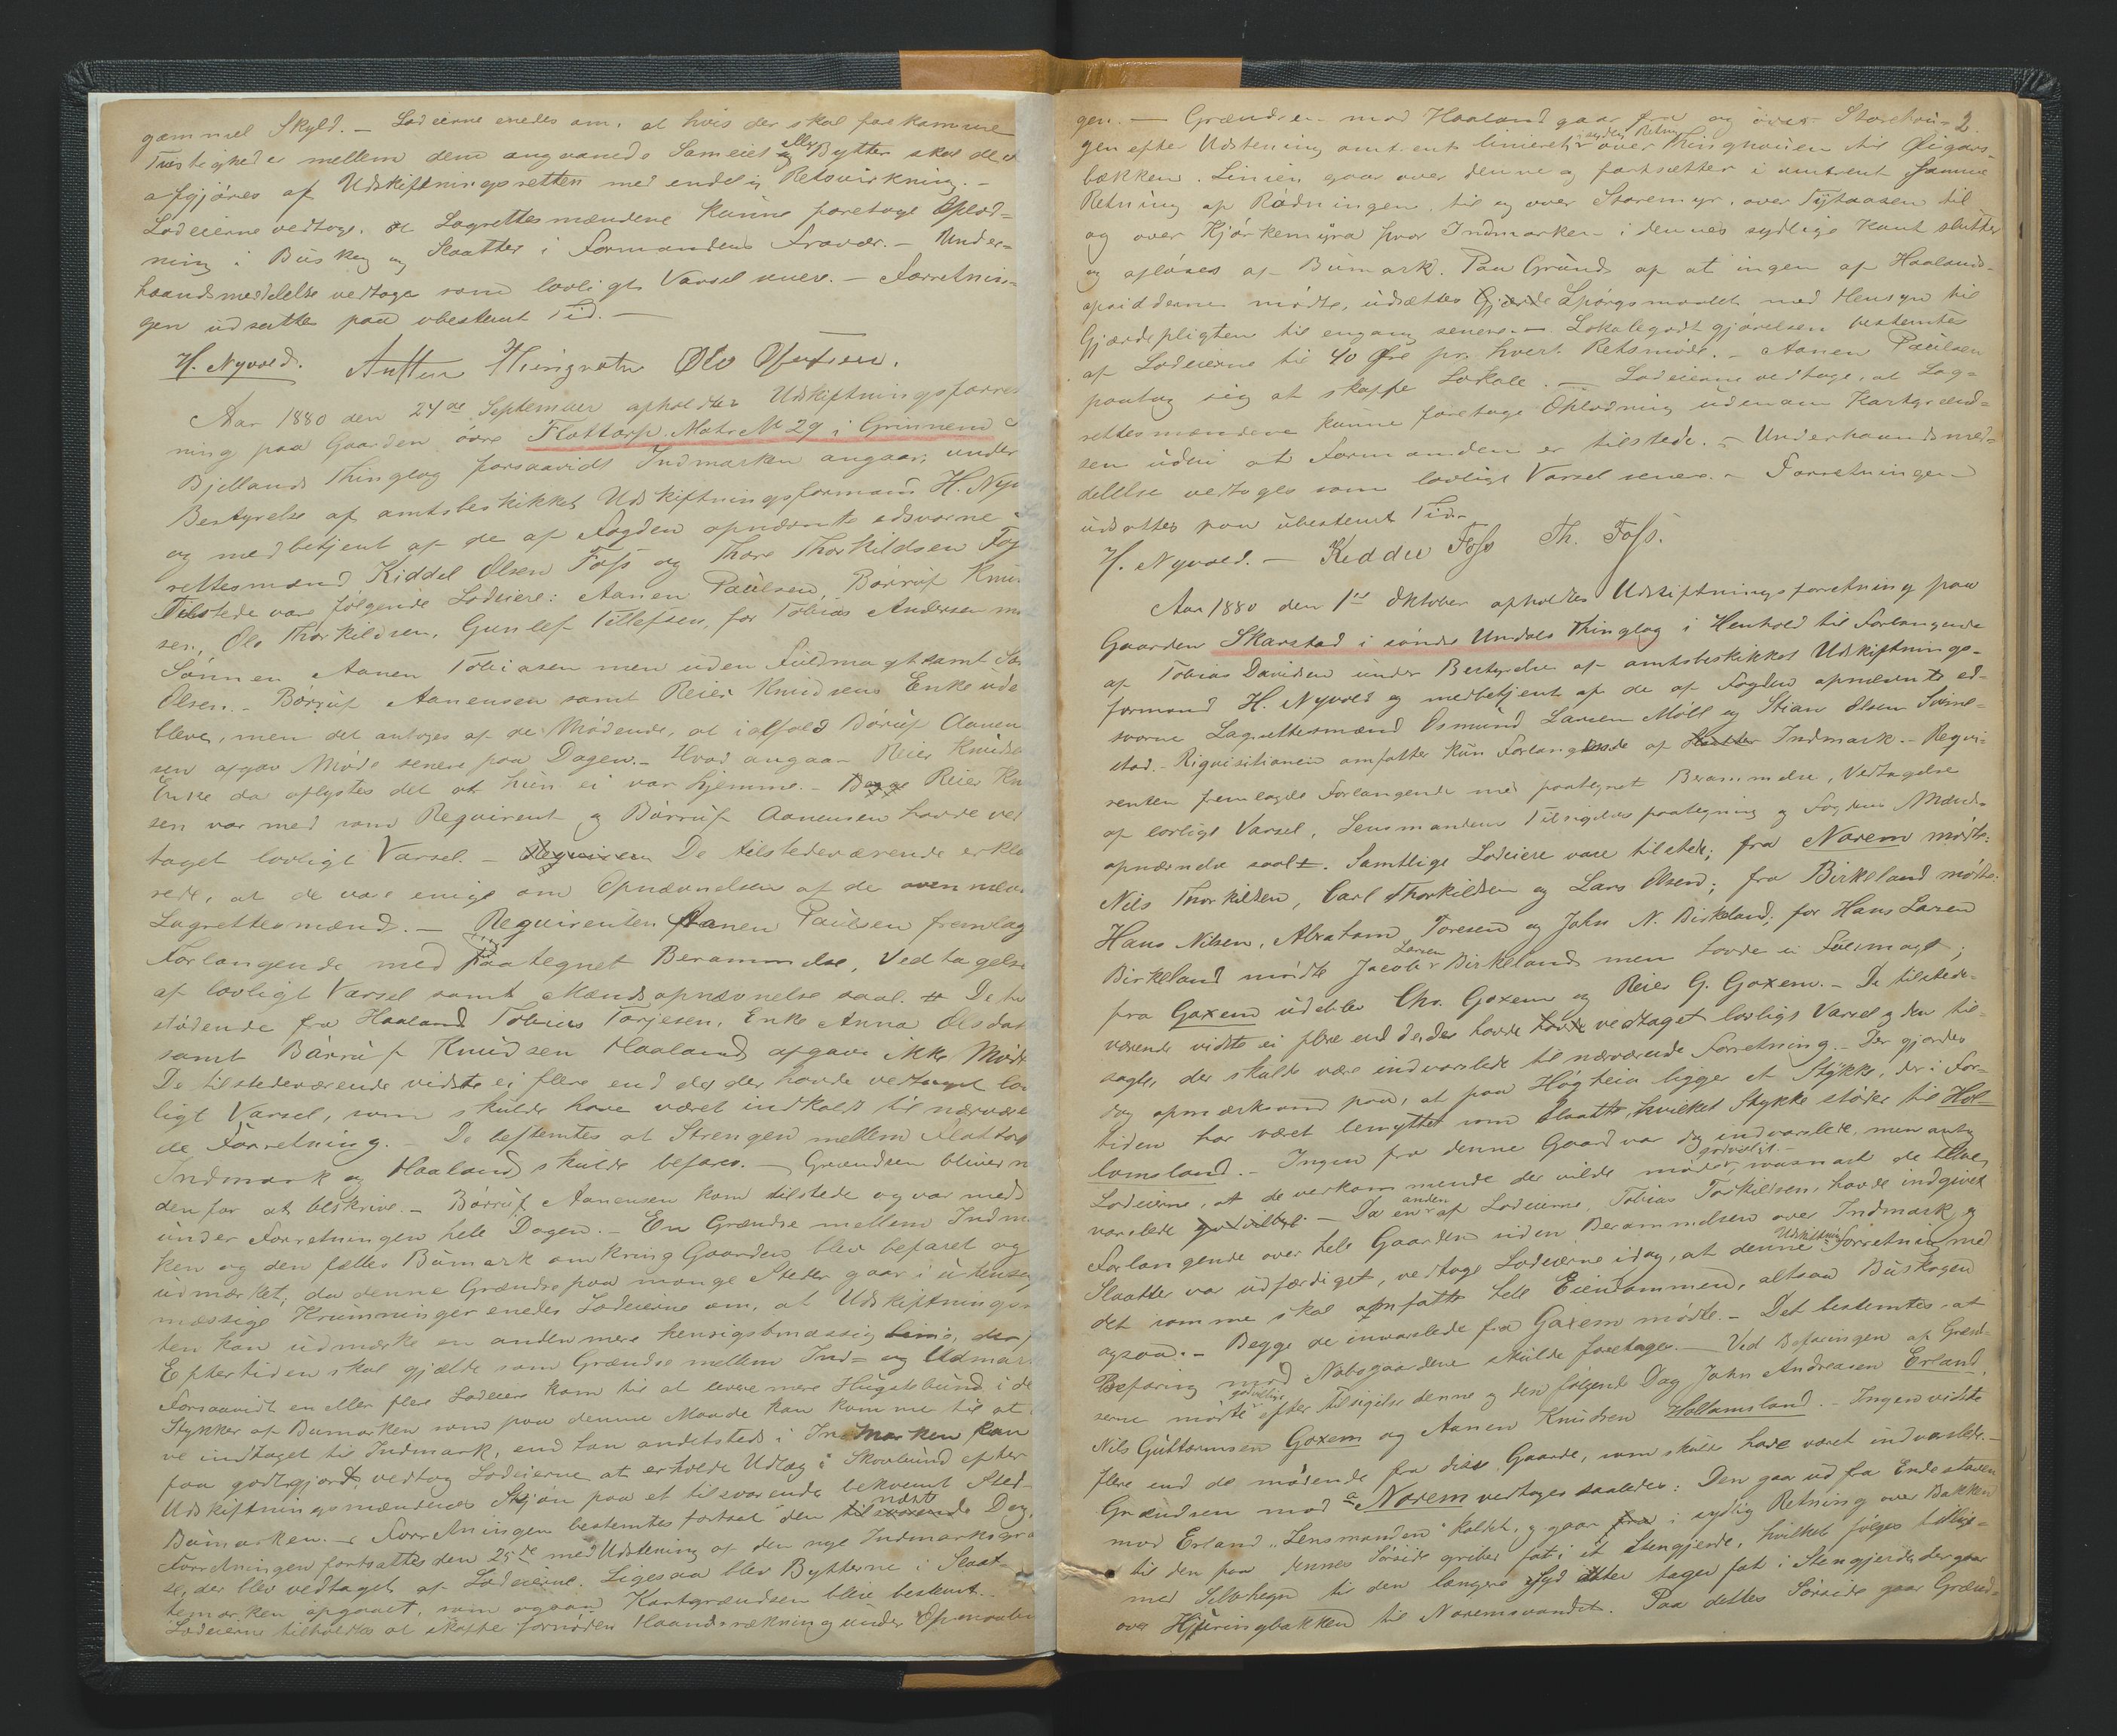 gammel Skyld. — Lodeierne enedes om, at hvis der skal forekomme
Tvistighede mellem dem angaaende Sameiet eller Bytter skal det
afgjøres af Udskiftningsretten med endelig Retsvirkning. —
Lodeierne vedtoge, at Lagrettesmændene kunne foretage Oplod=
ning i Buskog og Slaatter i Formandens Fravær. — Under=
haandsmeddelelse vedtoge som lovligt Varsel senere. — Forretnin=
gen udsattes paa ubestemt Tid. —
H. Nyvold.
Aar 1880 den 24de September afholdtes Udskiftningsforret
ning paa Gaarden övre Flottorp Matr No 29 i Grinnem
Bjellands Thinglag forsaavidt Indmarken angaar, under
Bestyrelse af amtsbeskikket Udskiftningsformand H. Nyv
og medbetjent af de af Fogden opnævnte edsvorne
rettesmænd Kiddel Olsen Foss og Thore Thorkildsen Fos
Tilstede vare følgende Lodeiere: Aanen Paulsen, Børruf Knu
sen, Ole Thorkildsen, Gunlef Tellefsen, for Tobias Andersen
Sønnen Aanen Tobiasen men uden Fuldmagt samt
Olsen. — Børruf Aanensen samt Reier Knudsens Enke ude
bleve, men det antoges af de Mødende, at ialfald Børuf Aanen
sen afgav Møde senere paa Dagen. — Hvad angaar Reier Knudse
Enke da oplystes det at hun ei var hjemme. — Reier Kn
sen var med som Requirent og Børruf Aanensen havde ved
taget lovligt Varsel. — De tilstedeværende erklæ
rede, at de vare enige om Opnævnelsen af de ovennævn
Lagrettesmænd. — Requirenten Aanen Paulsen fremlag
Forlangende med paategnet Berammelse, Vedtagelse
af lovligt Varsel samt Mændsopnævnelse saal. # De til
stødende fra Haaland Tobias Tarjesen, Enke Anna Olsdat
samt Børruf Knudsen Haaland afgav ikke Møde
De tilstedeværende vidste ei flere end de, der havde vedtaget lov
ligt Varsel, som skulde have været indkaldt til nærvære
de Forretning. — De bestemtes at Strengen mellem Flottor
Indmark og Haaland skulde befares. — Grændsen bliver n
denfor at beskrive. — Børruf Aanensen kom tilstede og var med
under Forretningen hele Dagen. — En Grændse mellem Indm
ken og den fælles Bumark omkring Gaarden blev befaret og
udmærket, da denne Grændse paa mange Steder gaar i uhensig
mæssige Krumninger enedes Lodeierne om, at Udskiftningsr
ten kan udmærke en anden mere hensigtsmæssig Linie, der
Eftertiden skal gjælde som Grændse mellem Ind= og Udmar
Forsaavidt en eller flere Lodeiere kom til at levere mere Hugstbund i de
Stykker af Bumarken som paa denne Maade kan komme til at
ve indtaget til Indmark, end han andetsteds i Indmarken kan
faa godtgjort, vedtog Lodeierne at erholde Udlæg i Skovbund efter
Udskiftningsmændenes Skjøn paa et tilsvarende bekvemt Sted
Bumarken. — Forretningen bestemtes fortsat den næste Dag.
Forretningen fortsattes den 25de med Udstening af den nye Indmarksgræ
se, der blev vedtaget af Lodeierne. Ligesaa blev Bytterne i Slaat=
temarken opgaaet, som ogsaa Kartgrændsen blev bestemt.
Lodeierne tilholdtes at skaffe fornøden Haandsrækning under Opmaalin
2.
gen. — Grændsen mod Haaland gaar fra og over Storehau=
gen efter Udstening omtrent linieret i sydlig Retning over Thinghauen til
bækken. Linien gaar over denne og fortsætter i omtrent samme
Retning af Rødningen, til og over Storemyr, over Tjstaasen til
og over Kjørkemyra hvor Indmarken i dennes sydlige Kant slutter
og afløses af Bumark. Paa Grund af at ingen af Haalands=
opsidderne mødte, udsættes Spørgsmaalet med Hensyn til
Gjærdepligten til engang senere. — Lokalegodtgjørelsen bestemtes
af Lodeierne til 40 Øre pr. hvert Retsmøde. — Aanen Paulsen
paatog sig at skaffe Lokale. — Lodeierne vedtoge, at Lag=
rettesmændene kunne foretage Oplodning udenom Kartgrænd=
sen uden at Formanden er tilstede. — Underhaandsmed=
delelse vedtoges som lovligt Varsel senere. — Forretningen
udsattes paa ubestemt Tid.
H. Nyvold. — Keddel Foss Th. Foss.
Aar 1880 den 1ste Oktober afholdtes Udskiftningsforretning paa
Gaarden Skarstad i søndre Undals Thinglag i Henhold til Forlangende
af Tobias Davidsen under Bestyrelse af amtsbeskikket Udskiftnings=
formand H. Nyvold og medbetjent af de af Fogden opnævnte ed=
svorne Lagrettesmænd Osmund Larsen Möll og Stian Olsen Svine=
stad. — Riquisitionen omfatter kun Forlangende af Indmark. — Requi=
renten fremlagde Forlangende med paategnet Berammelse, Vedtagelse
af lovligt Varsel, Lensmandens Tilsigelsespaategning og Fogdens Mænds=
opnævnelse saal. Samtlige Lodeiere vare tilstede; fra Norem mødte:
Nils Thorkildsen, Carl Thorkildsen og Lars Olsen; fra Birkeland mødte:
Hans Nilsen, Abraham Toresen og John N. Birkeland; for Hans Larsen
Birkeland mødte Jacob Larsen Birkeland men havde ei Fuldmagt;
fra Goxem udeblev Chr. Goxem og Reier G. Goxem. — De tilstede=
værende vidste ei flere end de der havde vedtaget lovligt Varsel og den til=
sagte, der skulde være indvarslede til nærværende Forretning. — Der gjordes
dog opmærksom paa, at paa Høgheia ligger et Stykke, der i For=
tiden har været benyttet som Slaatte, hvilket Stykke støder til Hol=
lomsland. — Ingen fra denne Gaard var dog indvarslede, men antog
Lodeierne, at de vedkommende der vilde møde godvilligt, naar de bleve
varslede. — Da en anden af Lodeierne, Tobias Torkildsen, havde indgivet
Forlangende over hele Gaarden inden Berammelsen over Indmark og
Slaatter var udfærdiget, vedtoge Lodeierne idag, at denne Udskiftningsforretning med
det samme skal omfatte hele Eiendommen, altsaa Buskogen
ogsaa. — Begge de indvarslede fra Goxem mødte. — Det bestemtes at
Befaring mod Nabogaardene skulde foretages. — Ved Befaringen af Grænd=
serne mødte godvillige efter Tilsigelse denne og den følgende Dag John Andreasen Erland,
Nils Guttormsen Goxem og Aanen Knudsen Hollomsland. — Ingen vidste
flere end de mødende fra disse Gaarde, som skulde have været indvarslede. —
Grændsen mod a Norem vedtoges saaledes: Den gaar ud fra Endestøven
mod Erland „Lensmanden" kaldet, og gaar i sydlig Retning over Bakken
til den paa dennes Sørside griber fat i et Stengjerde, hvilket følges tillige=
med Selvhegn til den længere Syd atter tager fat i Stengjerde, der gaar
over Hjuringbakken til Noremsvandet. Paa dettes Sørside gaar Grænd=